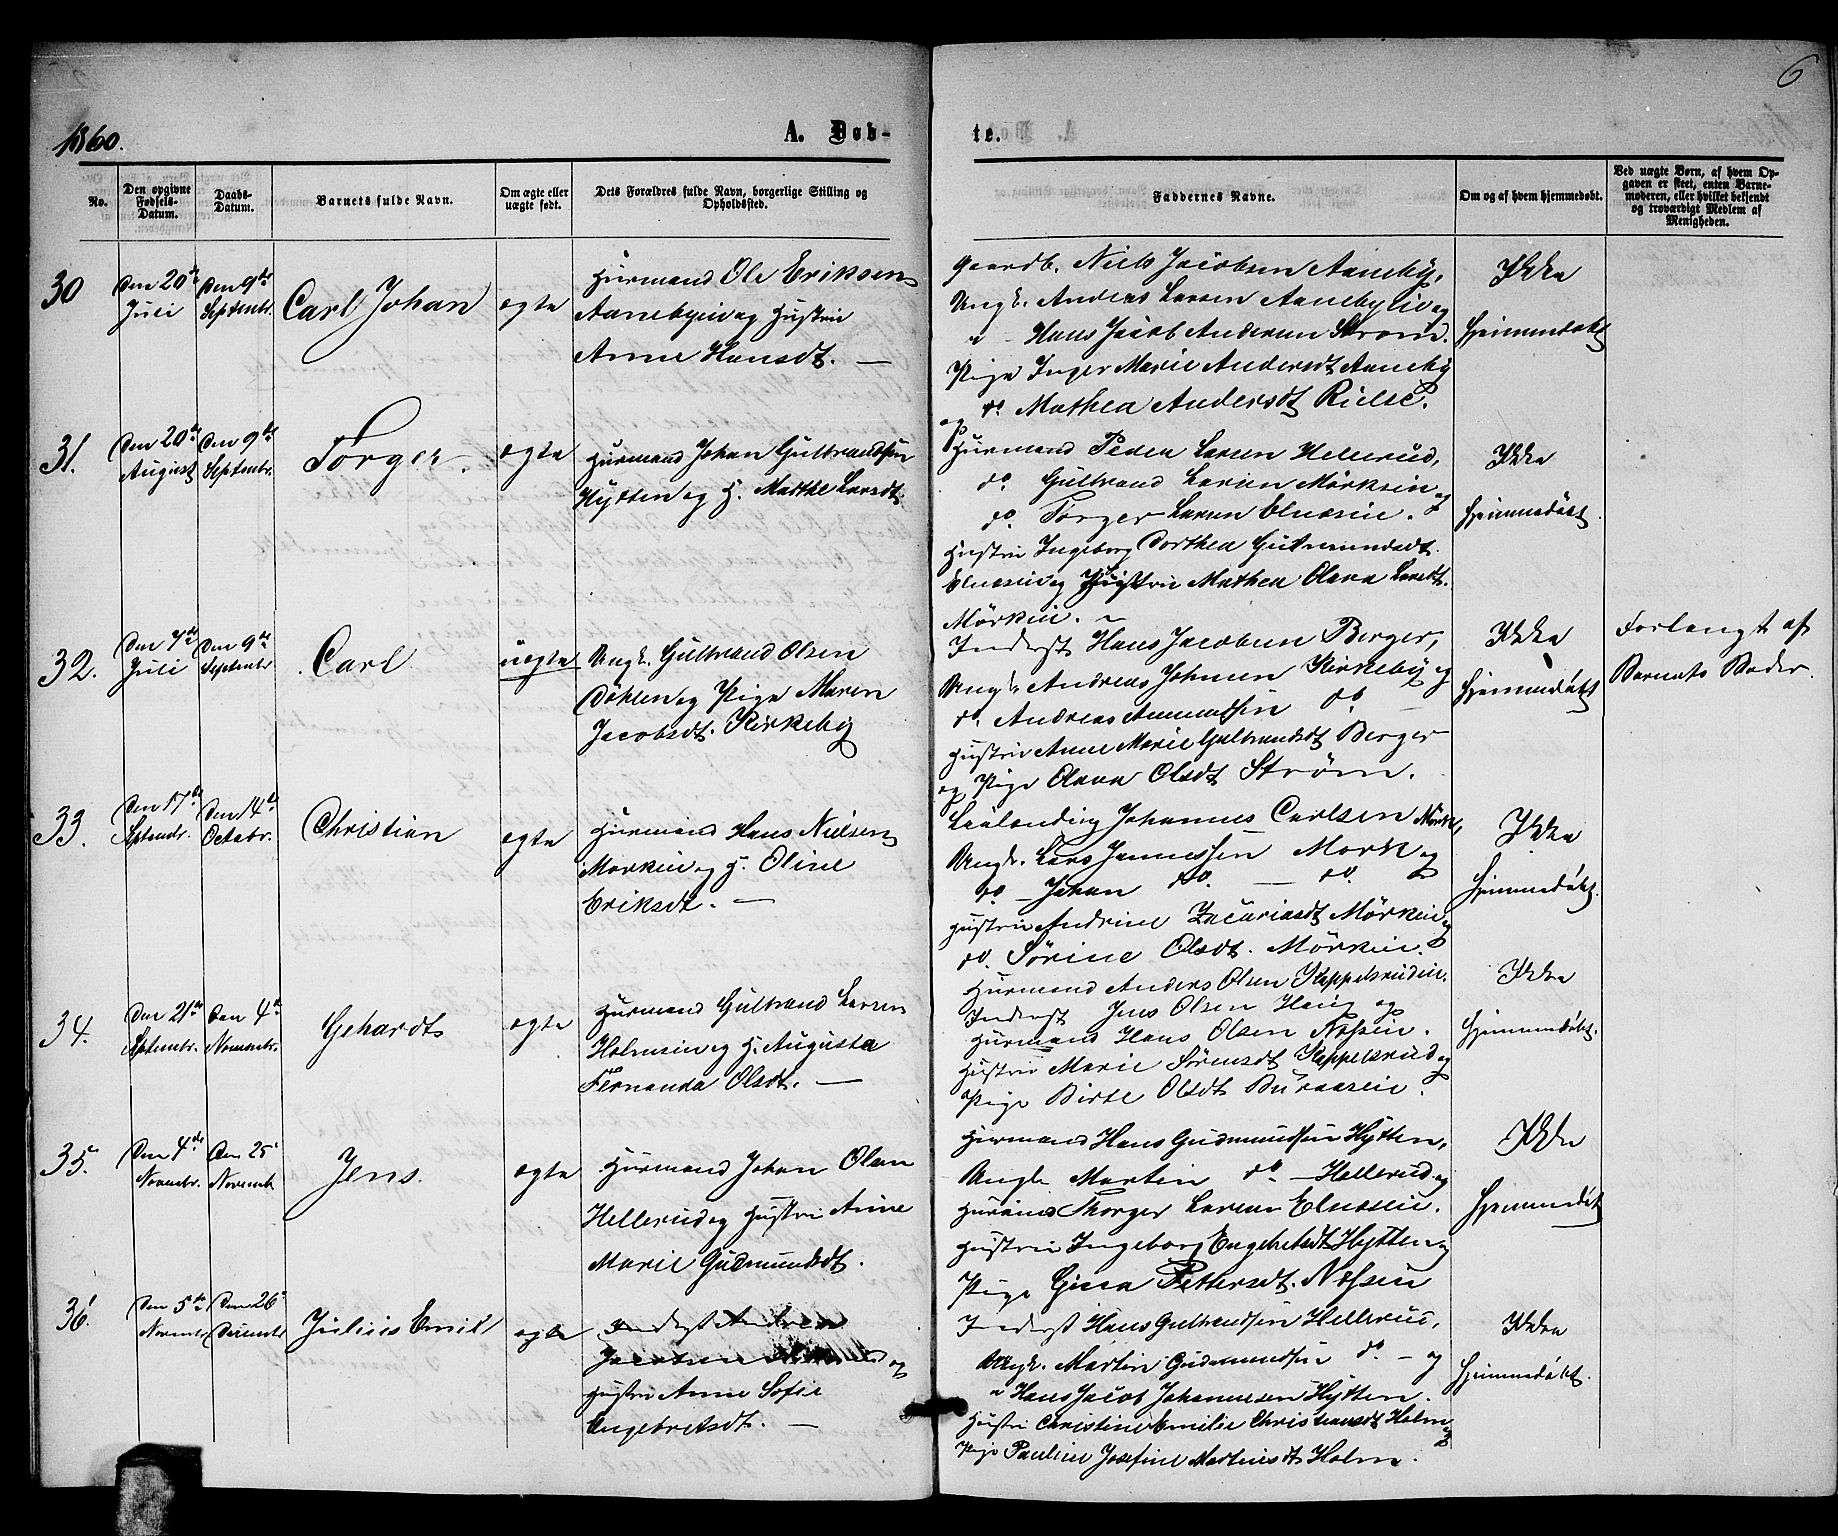 6
1860.
A. Døb-
te.
No.
Den opgivne Fødsels-Datum.
Daabs-Datum.
Barnets fulde Navn.
Om ægte eller uægte født.
Dets Forældres fulde Navn, borgerlige Stilling og Opholdssted.
Faddernes Navne.
Om og af hvem hjemmedøbt.
Ved uægte Børn, af hvem Opgaven er skeet, enten Barnemoderen, eller hvilket bekjendt og troværdigt Medlem af Menigheden.
30
Den 20de Juli
Den 9de Septembr.
Carl Johan
ægte
Huusmand Ole Eriksen
Aanebyeie og Hustrue
Anne Hansdt. —
Gaardb. Niels Jacobsen Aaneby,
Ungk. Anders Larsen Aanebyeie og
" - Hans Jacob Andersen Strøm.
Pige Inger Marie Andersdt Aaneby
og do. Mathea Andersdt
Ikke
hjemmedøbt
31.
Den 20de August
Den 9de Septembr.
Torger.
ægte
Huusmand Johan Gulbrandsen
Hytten og H. Marthe Larsdt.
Huusmand Peder Larsen Hellerud,
do. Gulbrand Larsen Mørkeie og
do. Torger Larsen Elnæseie.
Hustrue Ingeborg Dorthea Gudmundsdt.
Elnæseie og Hustrue Mathea Olava Larsdt.
Mørkeie. ~
Ikke
hjemmedøbt.
32.
Den 7de Juli
Den 9de Septembr
Carl
uægte
Ungk. Gulbrand Olsen
Døhlen og Pige Maren
Jacobsdt. Kirkeby
Inderst Hans Jacobsen Berger,
Ungk. Andreas Johnsen Kirkeby og
do. Andreas Amundsen do. —
Hustrue Anne Marie Gulbrandsdt Berger
og Pige Olava Olsdt Strøm.
Ikke
hjemmedøbt
Forlangt af
Barnets Moder.
33.
Den 17de Septembr.
Den 14de Octobr.
Christian
ægte
Huusmand Hans Nielsen
Mørkeie og H. Oline
Eriksdt. —
Johannes Carlsen Mørk,
Ungk. Lars Jannessen Mørk og
do. Johan do. — do.
Hustrue Andrine Zacariasdt Mørkeie og
do. Sørine Olsdt. Mørkeie.
Ikke
hjemmedøbt.
34.
Den 21de Septembr.
Den 4de Novembr.
Gehardt
ægte
Huusmand Gulbrand Larsen
Holmseie og H. Augusta
Fernanda Olsdt. —
Huusmand Anders Olsen Kappelsrudeie.
Inderst Jens Olsen Haug og
Huusmand Hans Olsen Næseie.
Hustrue Marie Sørensdt Kappelsrud og
Pige Birte Olsdt Buraaseie.
Ikke
hjemmedøbt.
35.
Den 4de Novembr.
Den 25 Novemb
Jens.
ægte
Huusmand Johan Olsen
Hellerud og Hustrue Anne
Marie Gudmundsdt.
Huusmand Hans Gudmundsen Hytten,
Ungk. Martin do. — Hellerud og
Huusmd Thorger Larsen Elnæseie.
Hustrue Ingeborg Engebretsdt Hytten og
Pige Gina Pettersdt. Næseie
Ikke
hjemmedøbt
36.
Den 5te Novembr
Den 26 Decembr
Julius Emil
ægte
Inderst Andreas
Jacobsen og
Hustrue Anne Sofie
Engebretsdt. —
Inderst Hans Gulbrandsen Hellerud,
Ungk. Martin Gudmundsen do. — og
" Hans Jacob Johannesen Hytten.
Hustrue Christine Emilie Christiansdt Holm og
Pige Pauline Josefine Martinsdt Holm.
Ikke
hjemmedøbt.